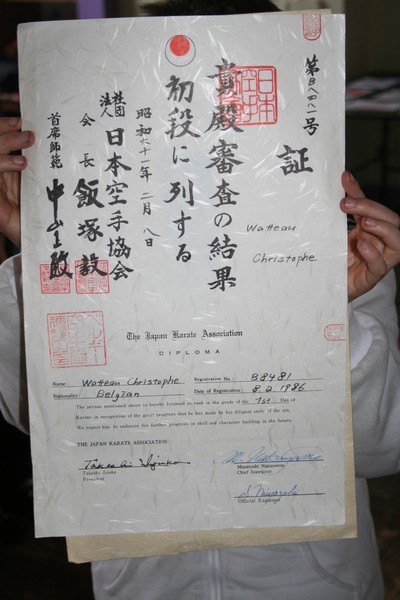 第B八四八一号
証
Watteau
Christophe
貴殿審査の結果
初段に列する
昭和六十一年二月八日
社団法人 日本空手協会
会長 飯塚毅
首席師範 中山正敏
The Japan Karate Association
DIPLOMA
Name: Watteau Christophe Registration No.: B8481
Nationality: Belgian Date of Registration: 8.2.1986
The person mentioned above is hereby licensed to rank in the grade of the 1st Dan of
Karate in recognition of the great progress that he has made by his diligent study of the art.
We expect him to endeavor for further progress in skill and character building in the future.
THE JAPAN KARATE ASSOCIATION
Takeshi Iizuka
President
Masatoshi Nakayama
Chief Instructor
S. Miyazaki
Official Examiner